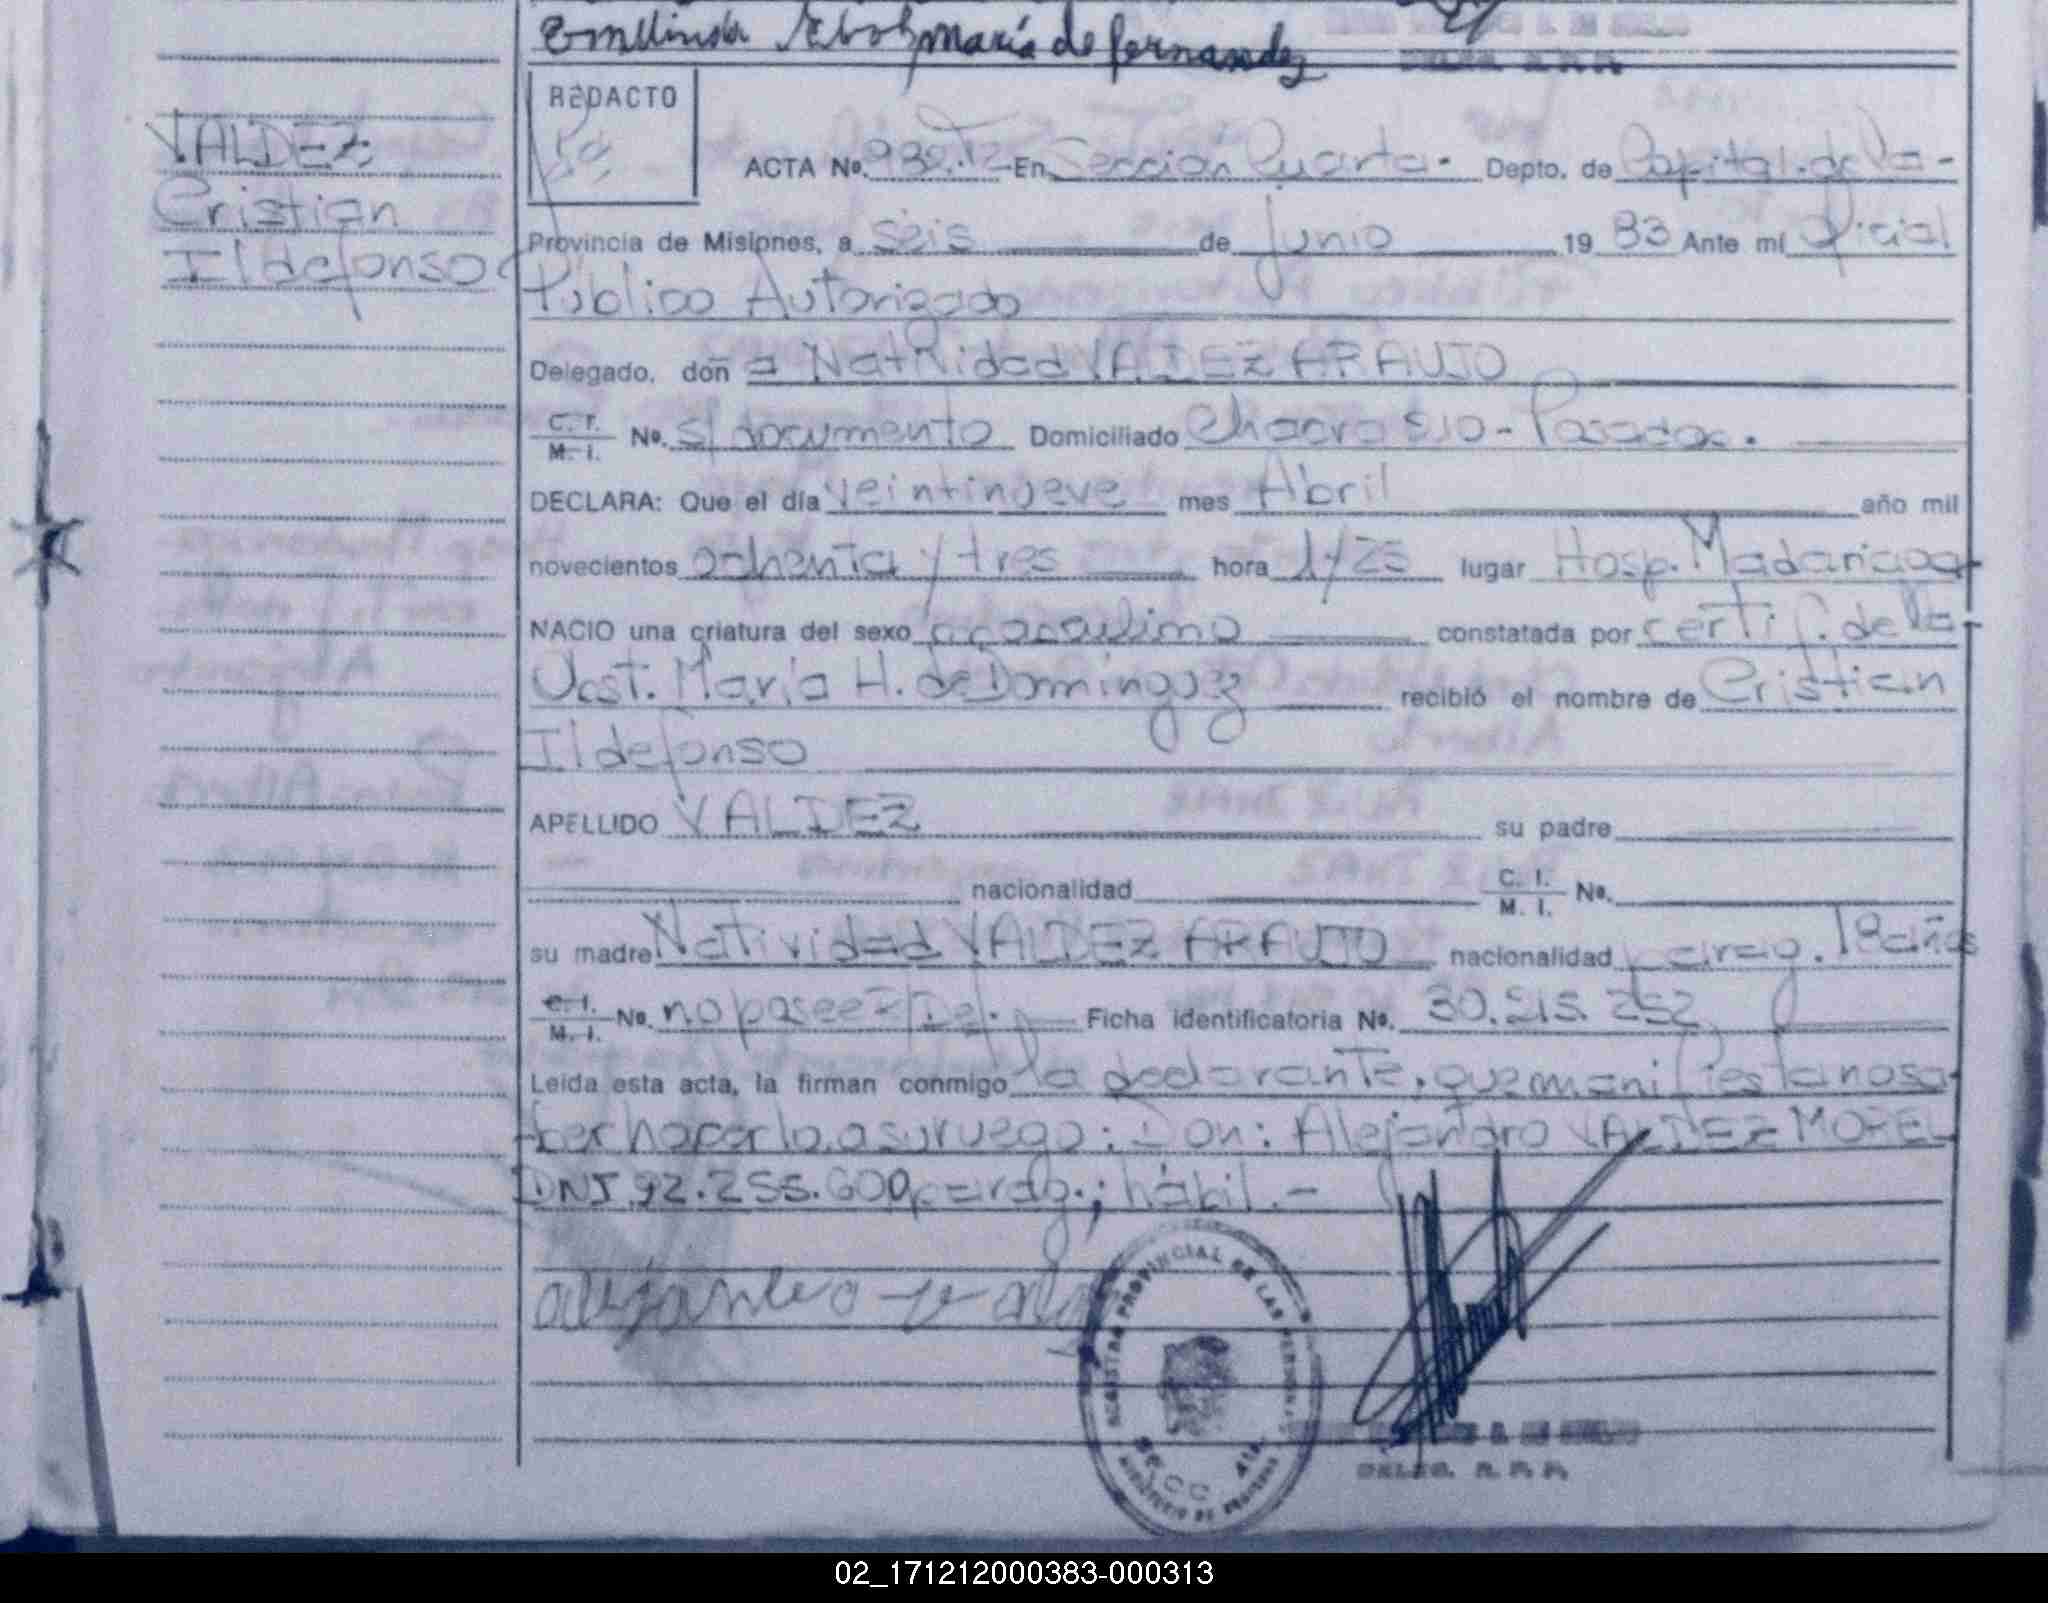 Emilinda María de Fernandez
REDACTO
VALDEZ
Cristian
Ildefonso
ACTA No. 932. T2 - En Sección Cuarta. Depto. de Capital. de la -
Provincia de Misiones, a seis de Junio 19 83 Ante mí Oficial
Público Autorizado
Delegado, doñ a Natividad VALDEZ ARAUJO
C. I. M. I. No. s/documento Domiciliado Chacra - Posadas.
DECLARA: Que el día veintinueve mes Abril año mil
novecientos ochenta y tres hora 1/25 lugar Hosp. Madariaga
NACIO una criatura del sexo masculino constatada por certif. de la
Obst. María H. de Dominguez recibió el nombre de Cristian
Ildefonso
APELLIDO VALDEZ su padre
nacionalidad C. I. M. I. No.
su madre Natividad VALDEZ ARAUJO nacionalidad parag. 18 años
C. I. M. I. No. no posee Ficha identificatoria No. 30.215.252
Leída esta acta, la firman conmigo la declarante, que manifiesta no sa-
ber hacerlo, a su ruego: Don: Alejandro VALDEZ MOREL
DNI. 92.255.600, parag.; hábil. -
REGISTRO PROVINCIAL DE LAS PERSONAS
SECC. 4ta.
MINISTERIO DE GOBIERNO
DELEG. R. P. P.
02_171212000383-000313